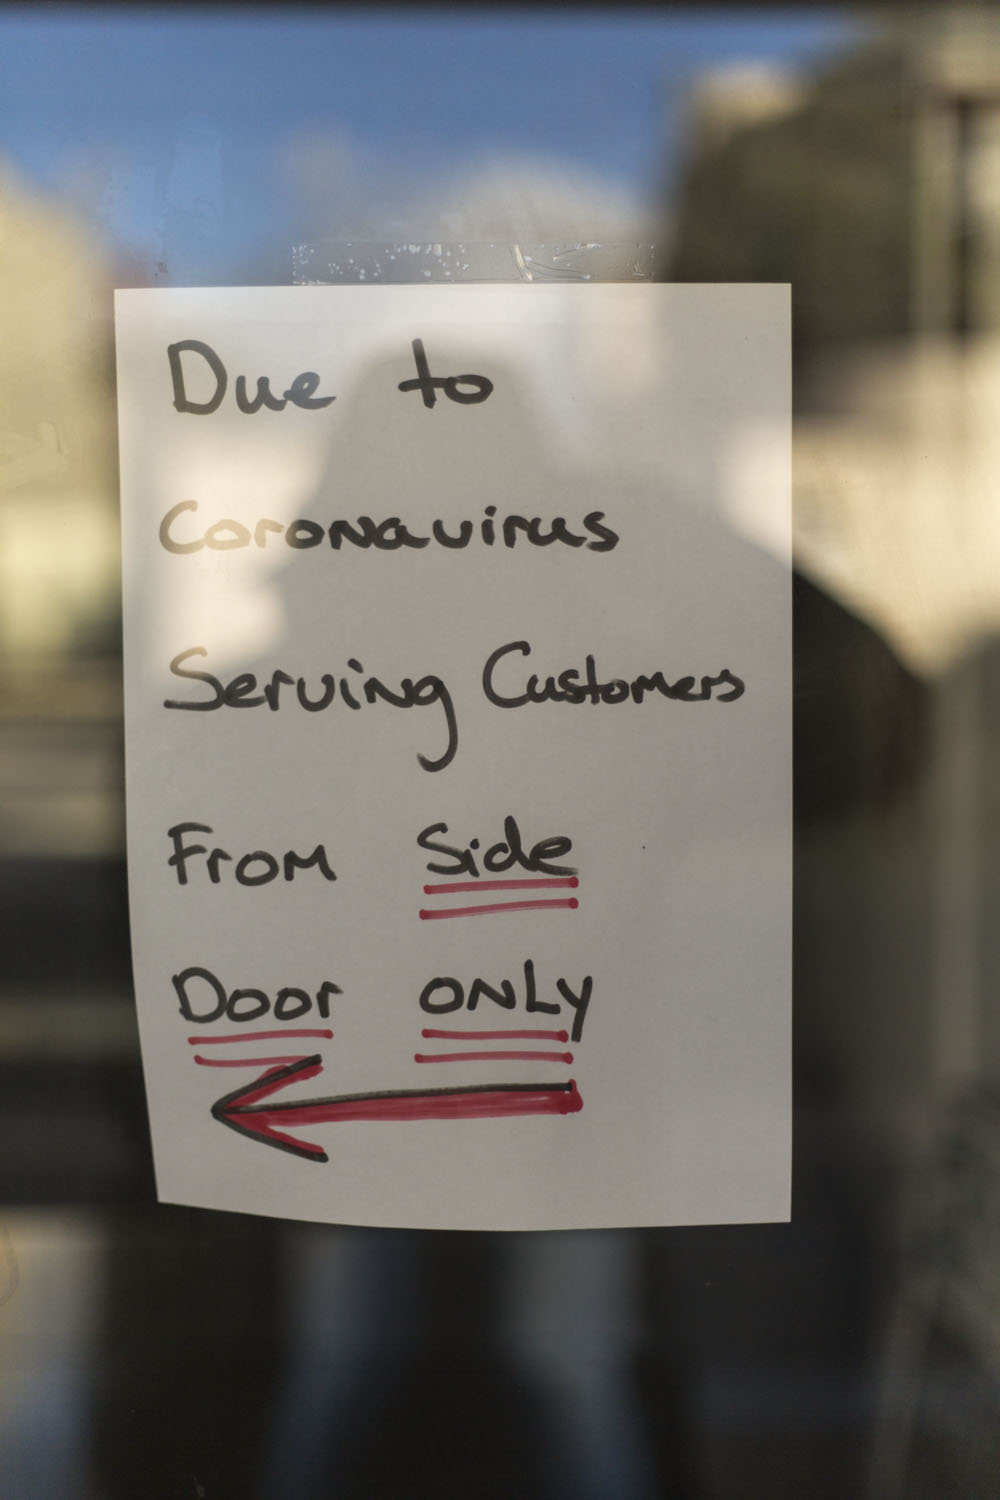 Due to
Coronavirus
Serving Customers
From Side
Door ONLY